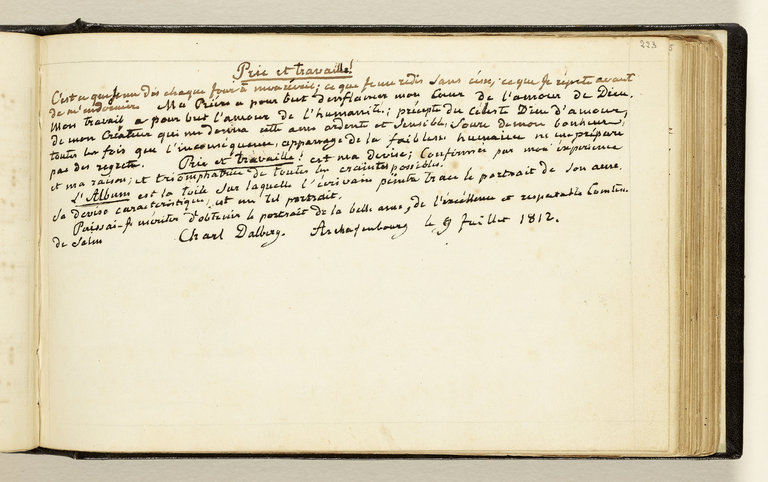 223
5
Prie et travaille!
C'est ce que je me dis chaque jour à mon réveil; ce que je me redis sans cesse; ce que je répete avant
de m'endormir. Ma Prière a pour but d'enflamer mon Cœur de l'amour de Dieu.
Mon travail a pour but l'amour de l'humanité; précepte du céleste Dieu d'amour,
de mon Créateur qui me donna cette ame ardente et sensible, source de mon bonheur,
toutes les fois que l'inconséquence, appanage de la faiblesse humaine ne me prépare
pas des regrets. Prie et travaille! est ma devise; Confirmée par mon expérience
et ma raison; et triomphatrice de toutes les craintes possibles.
L'Album est la toile sur laquelle l'écrivain peintre trace le portrait de son ame.
Sa devise caracteristique, est un tel portrait.
Puissai-je mériter d'obtenir le portrait de la belle ame, de l'excellence et respectable Comtesse
de Salm Charl Dalberg. Aschafenbourg le 9 Juillet 1812.